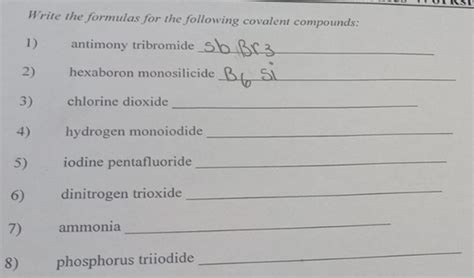 Write the formulas for the following covalent compounds:
1) antimony tribromide Sb Br3
2) hexaboron monosilicide B6 Si
3) chlorine dioxide
4) hydrogen monoiodide
5) iodine pentafluoride
6) dinitrogen trioxide
7) ammonia
8) phosphorus triiodide